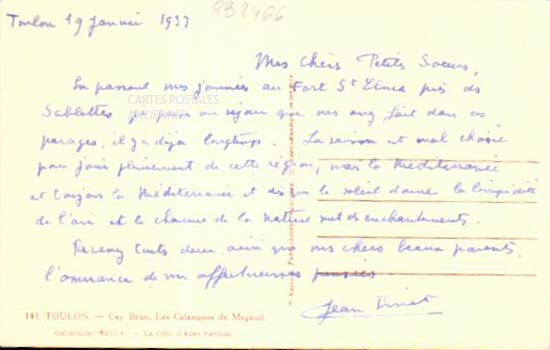 832466
Toulon 19 Janvier 1937
Mes Chers Petits Soeurs,
En passant mes journées au Fort St Elme près des
Sablettes je pense au séjour que vous avez fait dans ces
CARTES POSTALES
ANCIENNES
parages, il y a déjà longtemps. La saison est mal choisie
pour jouir pleinement de cette région, mais la Méditerranée
est toujours la Méditerranée et dès que le soleil donne la limpidité
de l'air et le charme de la nature sont des enchantements.
Recevez toutes deux, ainsi que mes chers beaux parents,
l'assurance de mes affectueuses pensées
Jean
143. TOULON. — Cap Brun, Les Calanques de Magaud.
Collection "REELA" — La Côte d'Azur Varoise.